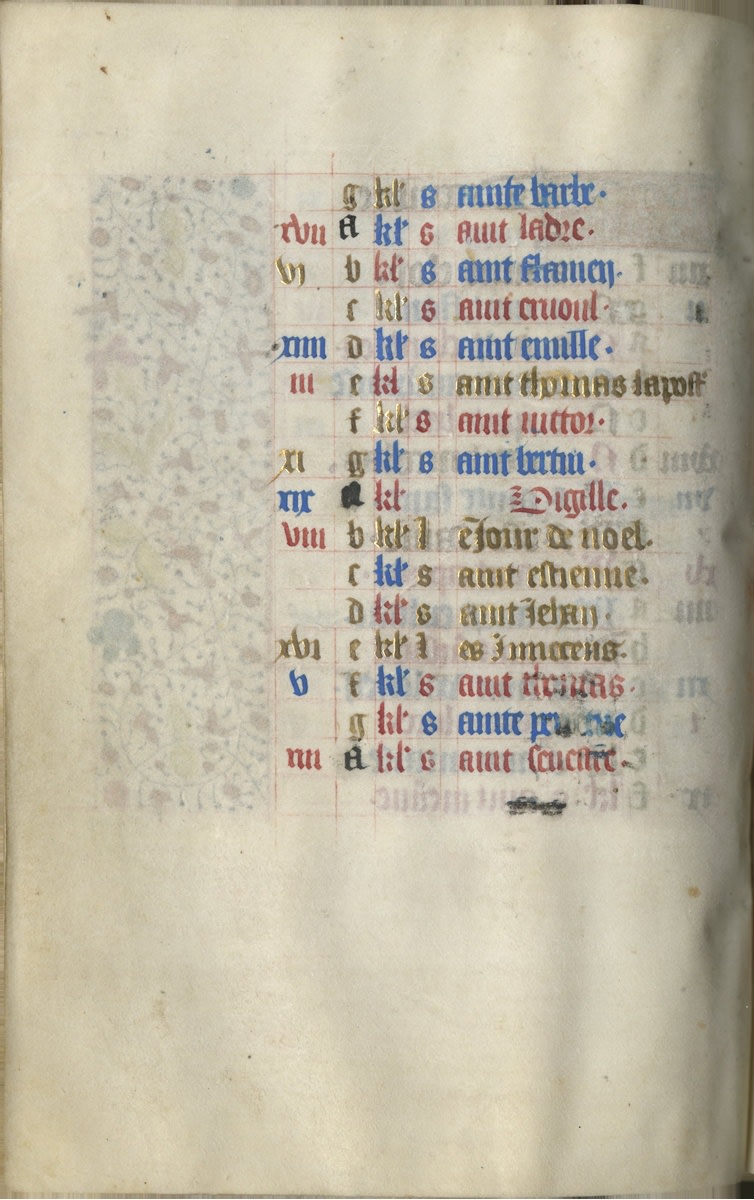 g kl' s ainte barbe.
xvii A kl' s aint ladre.
vi b kl' s aint flamen.
c kl' s aint cruoul.
xiiii d kl' s aint emille.
iii e kl s aint thomas lapost'
f kl' s aint uictor.
xi g kl' s aint bertin.
xix A kl Vigille.
viii b kl' l e Jour de noel.
c kl' s aint estienne.
d kl' s aint Jehan.
xvi e kl' l es Innocens.
v f kl' s aint thomas.
g kl' s ainte
iiii A kl' s aint seuestre.